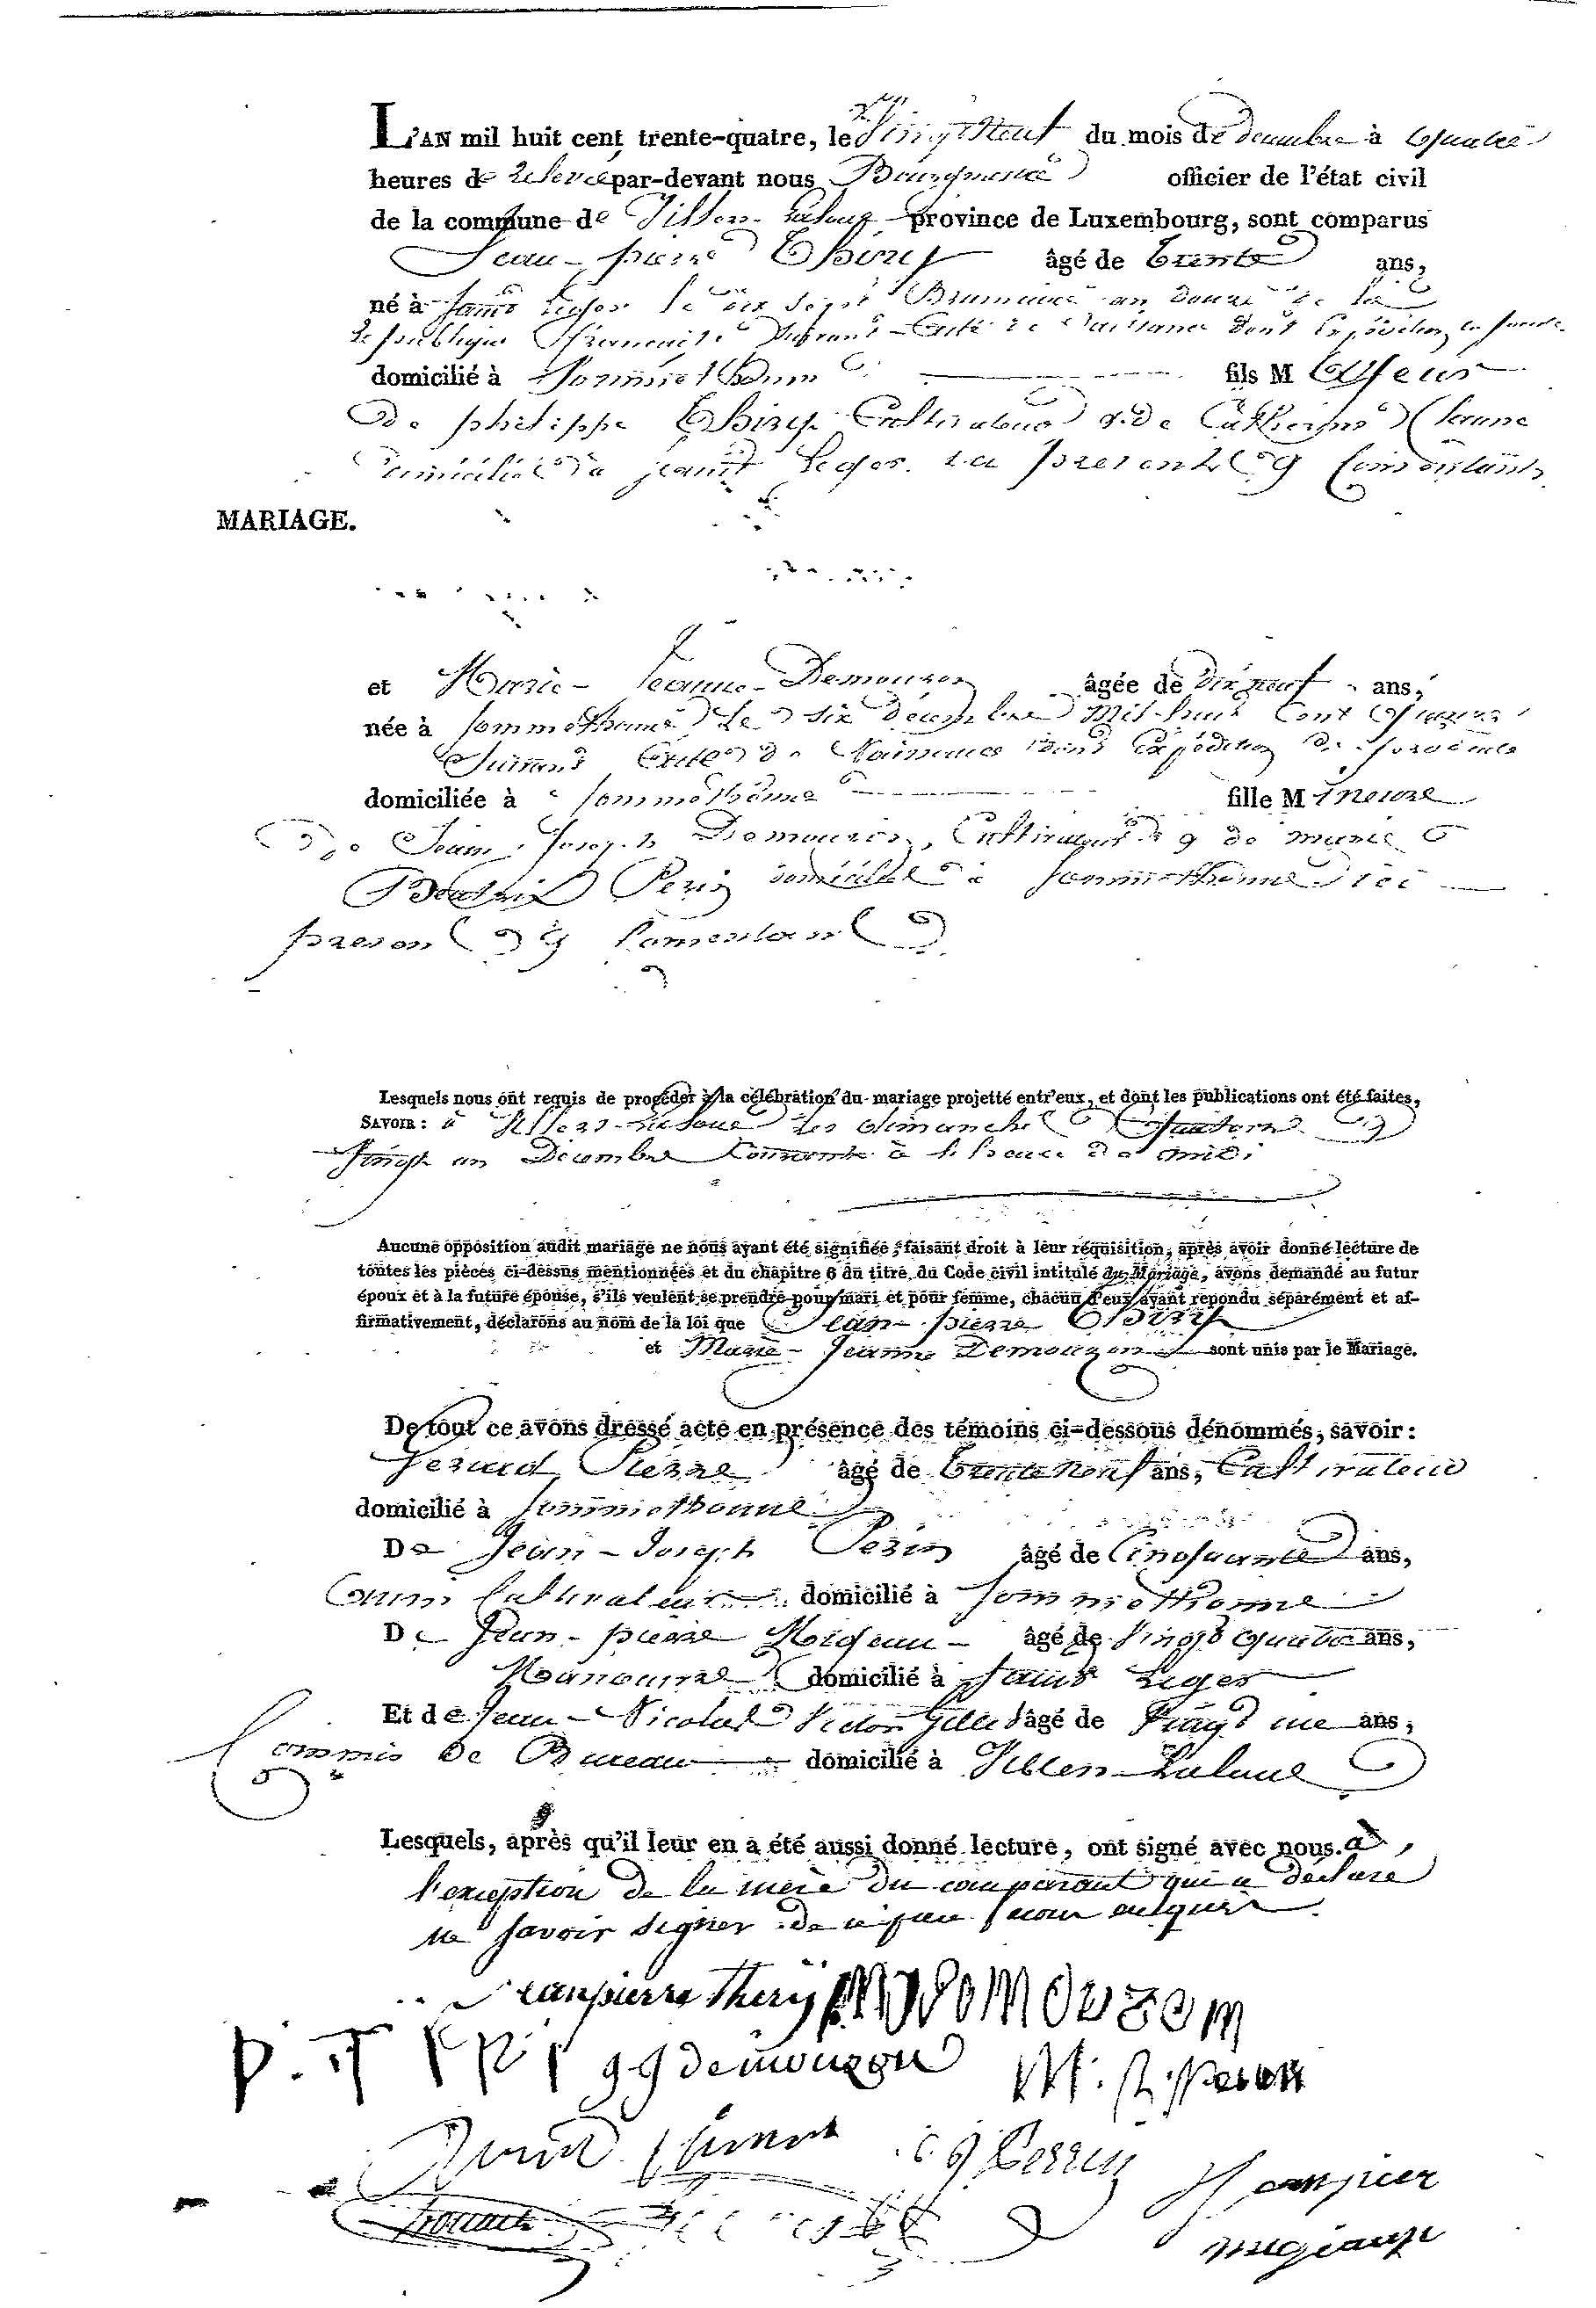 L'AN mil huit cent trente-quatre, le Vingt Neuf du mois de decembre à Quatre
heures de Relevée par-devant nous Bourgmestre officier de l'état civil
de la commune de Villers-La Loue province de Luxembourg, sont comparus
Jean-pierre Thiry âgé de trente ans,
né à Saint Leger le dix sept Brumaire an douze de la
Republique Suivant acte de Naissance dont Expédition
domicilié à Sommethonne fils M Majeur
De philippe Thiry Cultivateur & de Catherine
domicilié à Saint Leger ici present & Consentants
MARIAGE.
et Marie-Jeanne-Demouzon âgée de dix neuf ans,
née à Sommethonne le six décembre Mil huit Cent Quinze
Suivant Acte de Naissance dont Expédition
domiciliée à Sommethonne fille M ineure
De Jean Joseph Demouzon, Cultivateur & de marie
Beatrix Perin domicilié à Sommethonne ici
present & Consentant
Lesquels nous ont requis de procéder à la célébration du mariage projetté entr'eux, et dont les publications ont été faites,
SAVOIR : à Villers-La Loue les dimanche Quatorze &
Vingt un Décembre Courant à l'heure de midi
Aucune opposition audit mariage ne nous ayant été signifiée, faisant droit à leur réquisition, après avoir donné lecture de
toutes les pièces ci-dessus mentionnées et du chapitre 6 du titre du Code civil intitulé du Mariage, avons demandé au futur
époux et à la future épouse, s'ils veulent se prendre pour mari et pour femme, chacun d'eux ayant repondu séparément et af-
firmativement, déclarons au nom de la loi que Jean-pierre Thiry
et Marie-Jeanne Demouzon sont unis par le Mariage.
De tout ce avons dressé acte en présence des témoins ci-dessous dénommés, savoir :
Pierre âgé de Trente Neuf ans, Cultivateur
domicilié à Sommethonne
De Jean-Joseph Perin âgé de Cinquante ans,
Cultivateur domicilié à Sommethonne
De Jean-pierre Migeau âgé de Vingt Quatre ans,
Manouvre domicilié à Saint Leger
Et de Jean-Nicolas Victor âgé de Vingt ans,
Commis de Bureau domicilié à Villers-La Loue
Lesquels, après qu'il leur en a été aussi donné lecture, ont signé avec nous. à
l'exception de la mère du comparant qui a déclaré
ne savoir signer de ce
Jeanpierre thiry Mj Demouzom
P. T jj demouzon M. B. peren
j j Perrin Jeanpier
migeaux